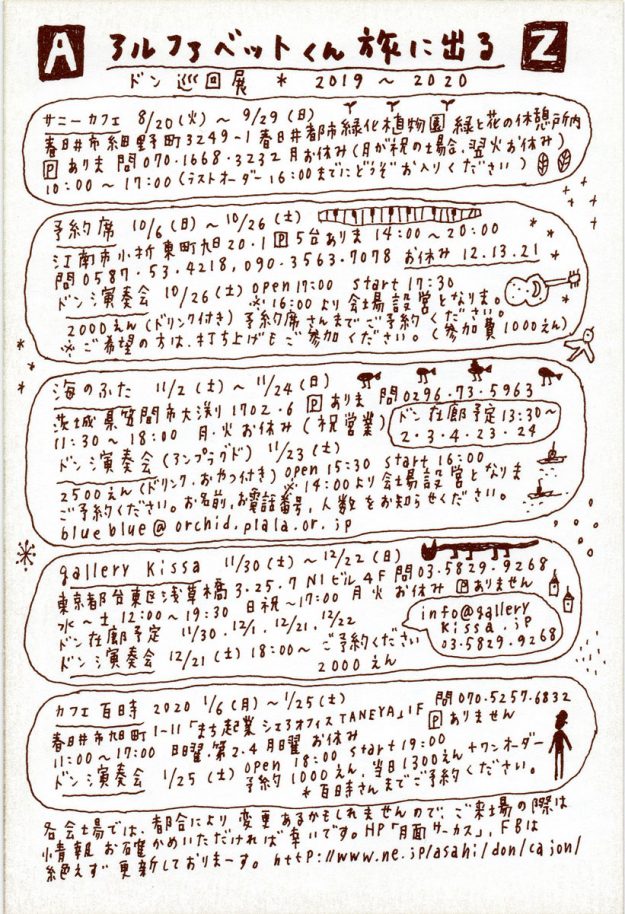 A アルファベットくん 旅に出る Z
ドン 巡回展 * 2019 〜 2020
サニーカフェ 8/20(火) 〜 9/29(日)
春日井市細野町3249-1 春日井都市緑化植物園 緑と花の休憩所内
P あります 問070.1668.3232 月お休み(月が祝の場合、翌火お休み)
10:00 〜 17:00 (ラストオーダー 16:00までにどうぞお入りください)
予約席 10/6(日) 〜 10/26(土)
江南市小折東町旭20.1 P 5台あります 14:00 〜 20:00
問 0587.53.4218, 090.3563.7078 お休み 12.13.21
ドン演奏会 10/26(土) open 17:00 start 17:30
※ 16:00より会場設営となります。
2000えん(ドリンク付き) 予約席さんまでご予約ください。
※ ご希望の方は、打ち上げもご参加ください。(参加費1000えん)
海のふた 11/2(土) 〜 11/24(日) P あります 問0296.73.5963
茨城県笠間市大渕1702.6
11:30 〜 18:00 月.火お休み(祝営業)
ドン在廊予定 13:30〜
2.3.4.23.24
ドン演奏会(アンプラグド) 11/23(土)
2500えん(ドリンク、おやつ付き) open 15:30 start 16:00
※ 14:00より会場設営となります
ご予約ください。お名前、お電話番号、人数をお知らせください。
blueblue@orchid.plala.or.jp
gallery kissa 11/30(土) 〜 12/22(日)
東京都台東区浅草橋3.25.7 N1ビル4F 問03.5829.9268
水〜土 12:00 〜 19:30 日祝 〜17:00 月火 お休み P ありません
ドン在廊予定 11/30. 12/1. 12/21. 12/22
ドン演奏会 12/21(土) 18:00〜 ご予約ください
2000えん
info@gallery
kissa.jp
03.5829.9268
カフェ百時 2020 1/6(月) 〜 1/25(土) 問070.5257.6832
春日井市旭町1-11「まち起業シェアオフィスTANEYA」1F P ありません
11:00 〜 17:00 日曜、第2.4月曜 お休み
ドン演奏会 1/25(土) open 18:00 start 19:00
予約1000えん、当日1300えん+ワンオーダー
*百時さんまでご予約ください。
各会場では、都合により変更あるかもしれませんので、ご来場の際は
情報お確かめいただければ幸いです。HP「月面サーカス」、FBは
絶えず更新しておりまーす。http://www.ne.jp/asahi/don/cajon/